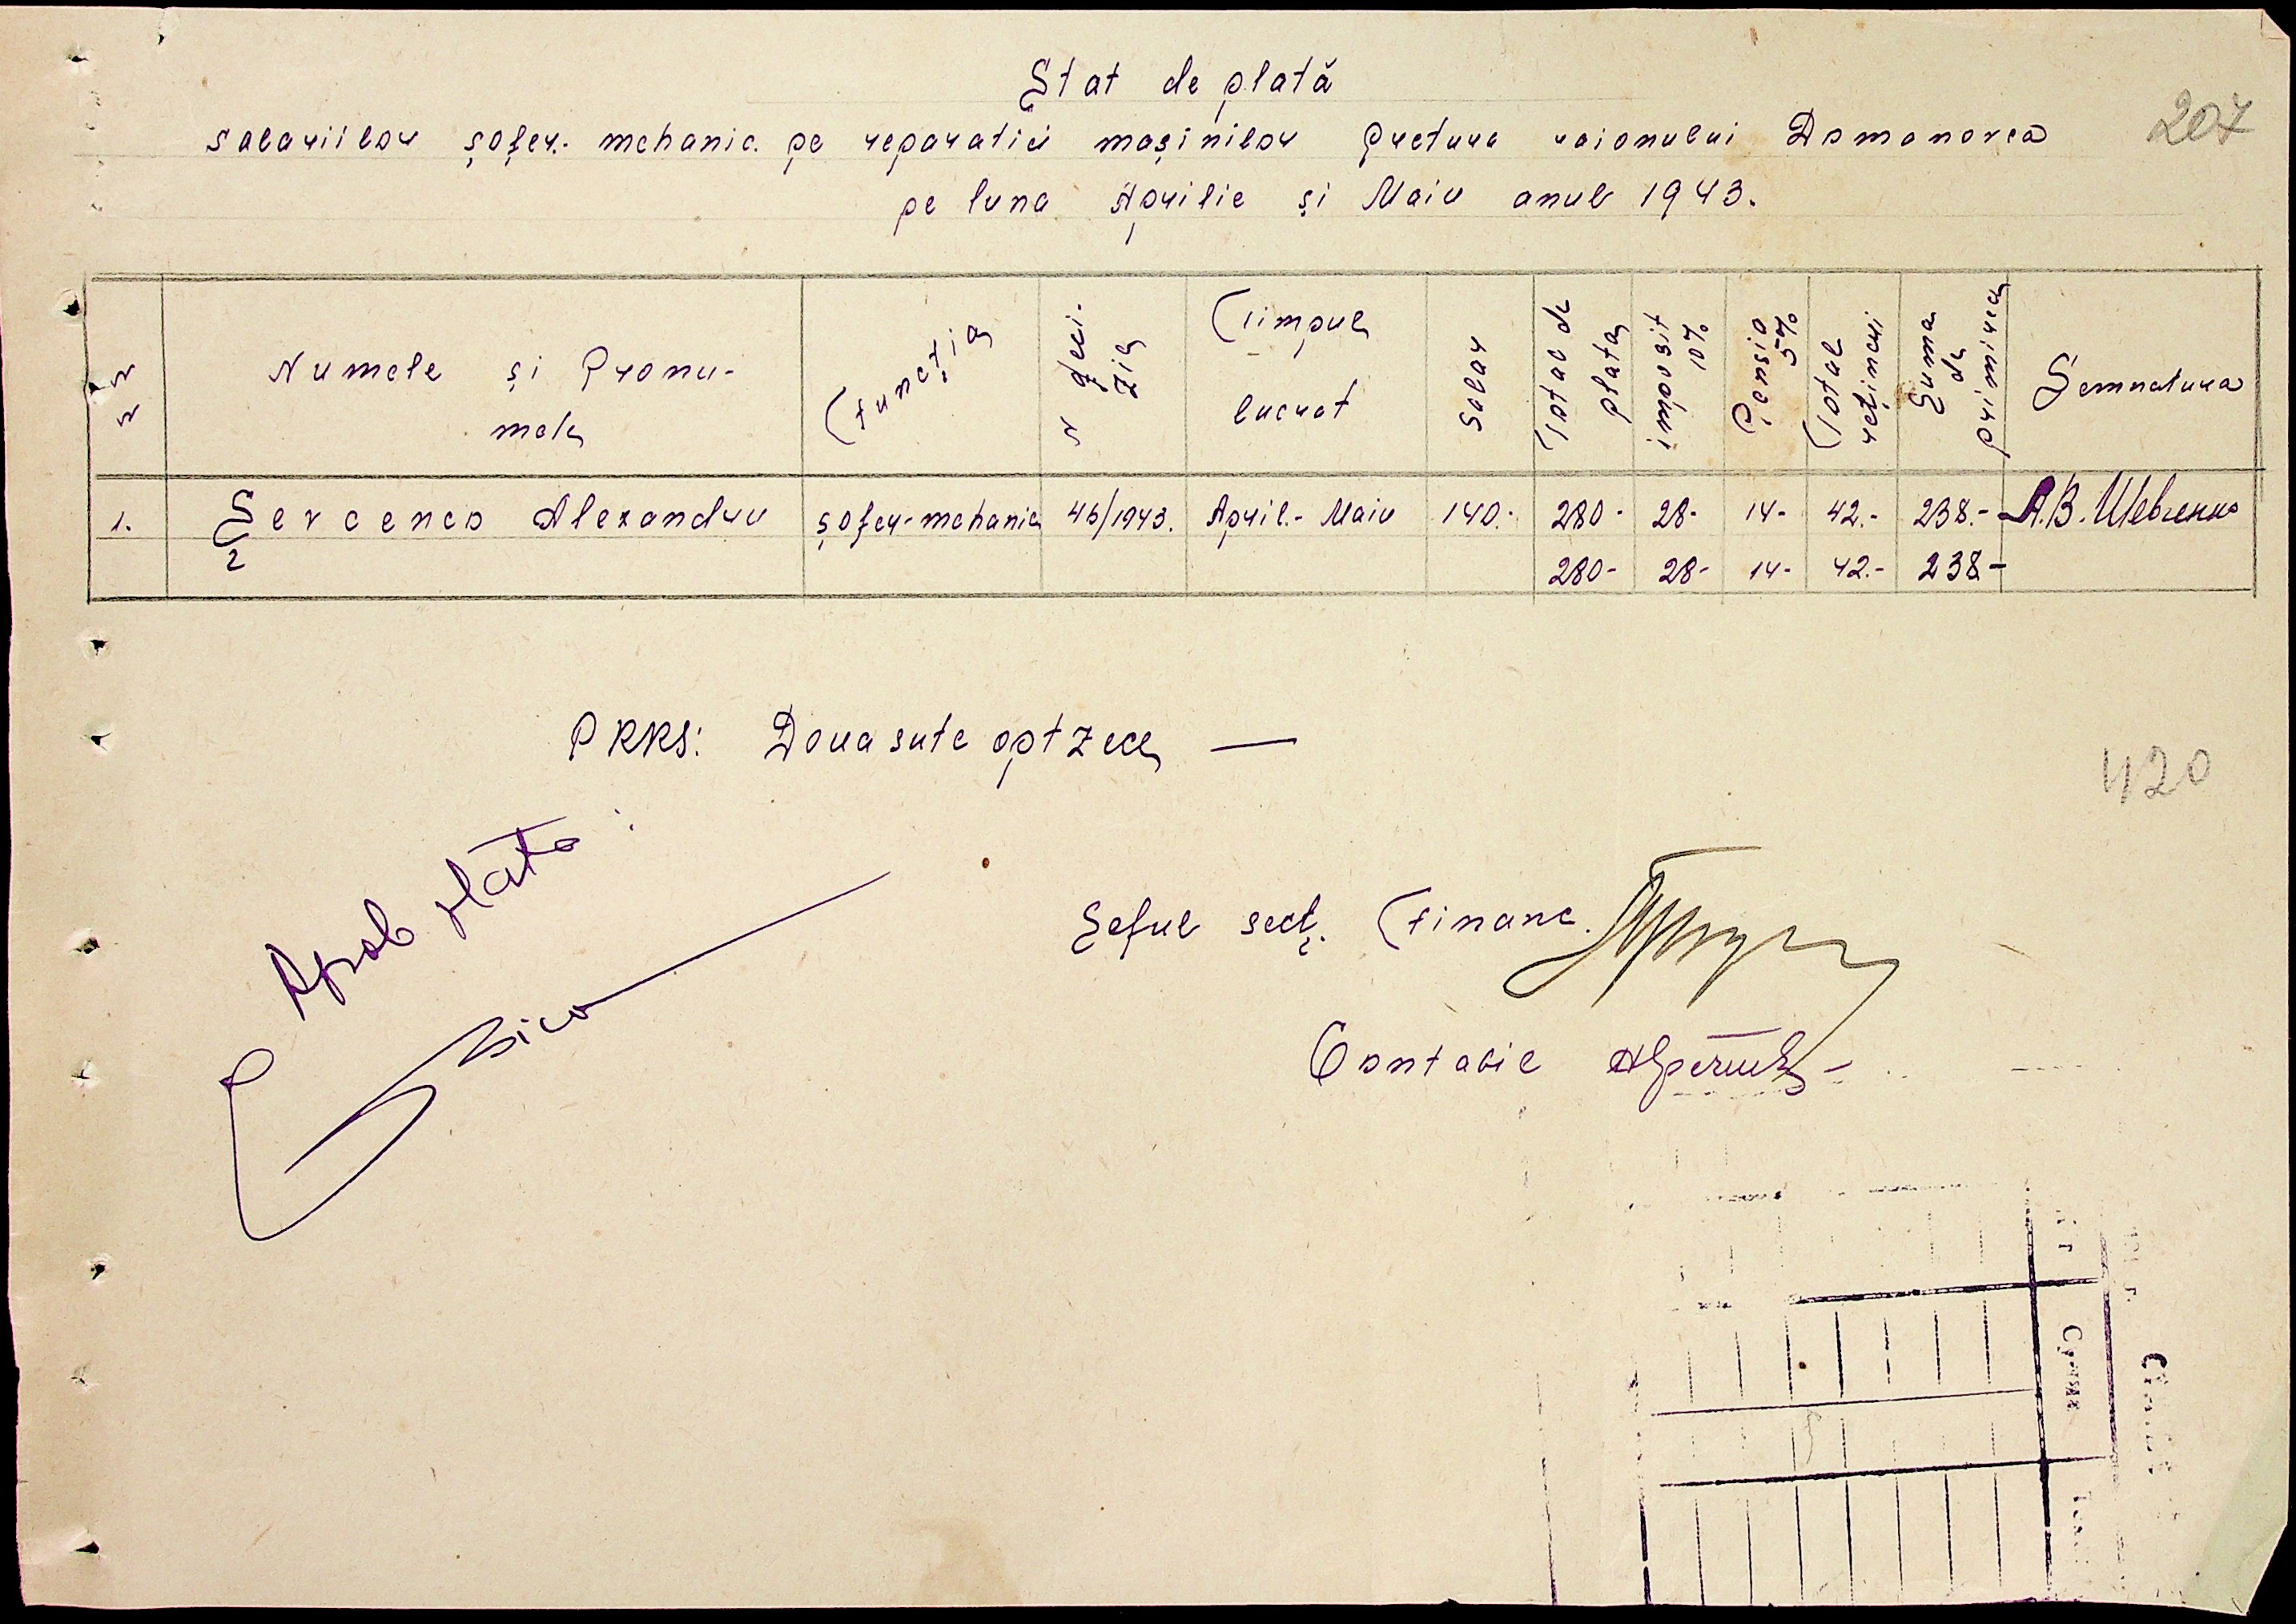 Stat de plată
salariilor șofer.- mehanic. pe reparatii mașinilor Pretura raionului Domanovca
207
pe luna Aprilie și Maiu anul 1943.
N N | Numele și Pronumele | Funcția | N Decizie | Timpul lucrat | Salar | Total de plata | imposit 10% | Pensia 5% | Total rețineri | Suma de primirea | Semnatura
1. | Șevcenco Alexandru | șofer-mehanic | 46/1943. | April.- Maiu | 140.- | 280- | 28- | 14- | 42.- | 238.- | А.В. Шевченко
280- | 28- | 14- | 42.- | 238.-
RKKS: Doua sute optzece —
420
Aprob plata:
Șeful secț. Financ.
Contabil